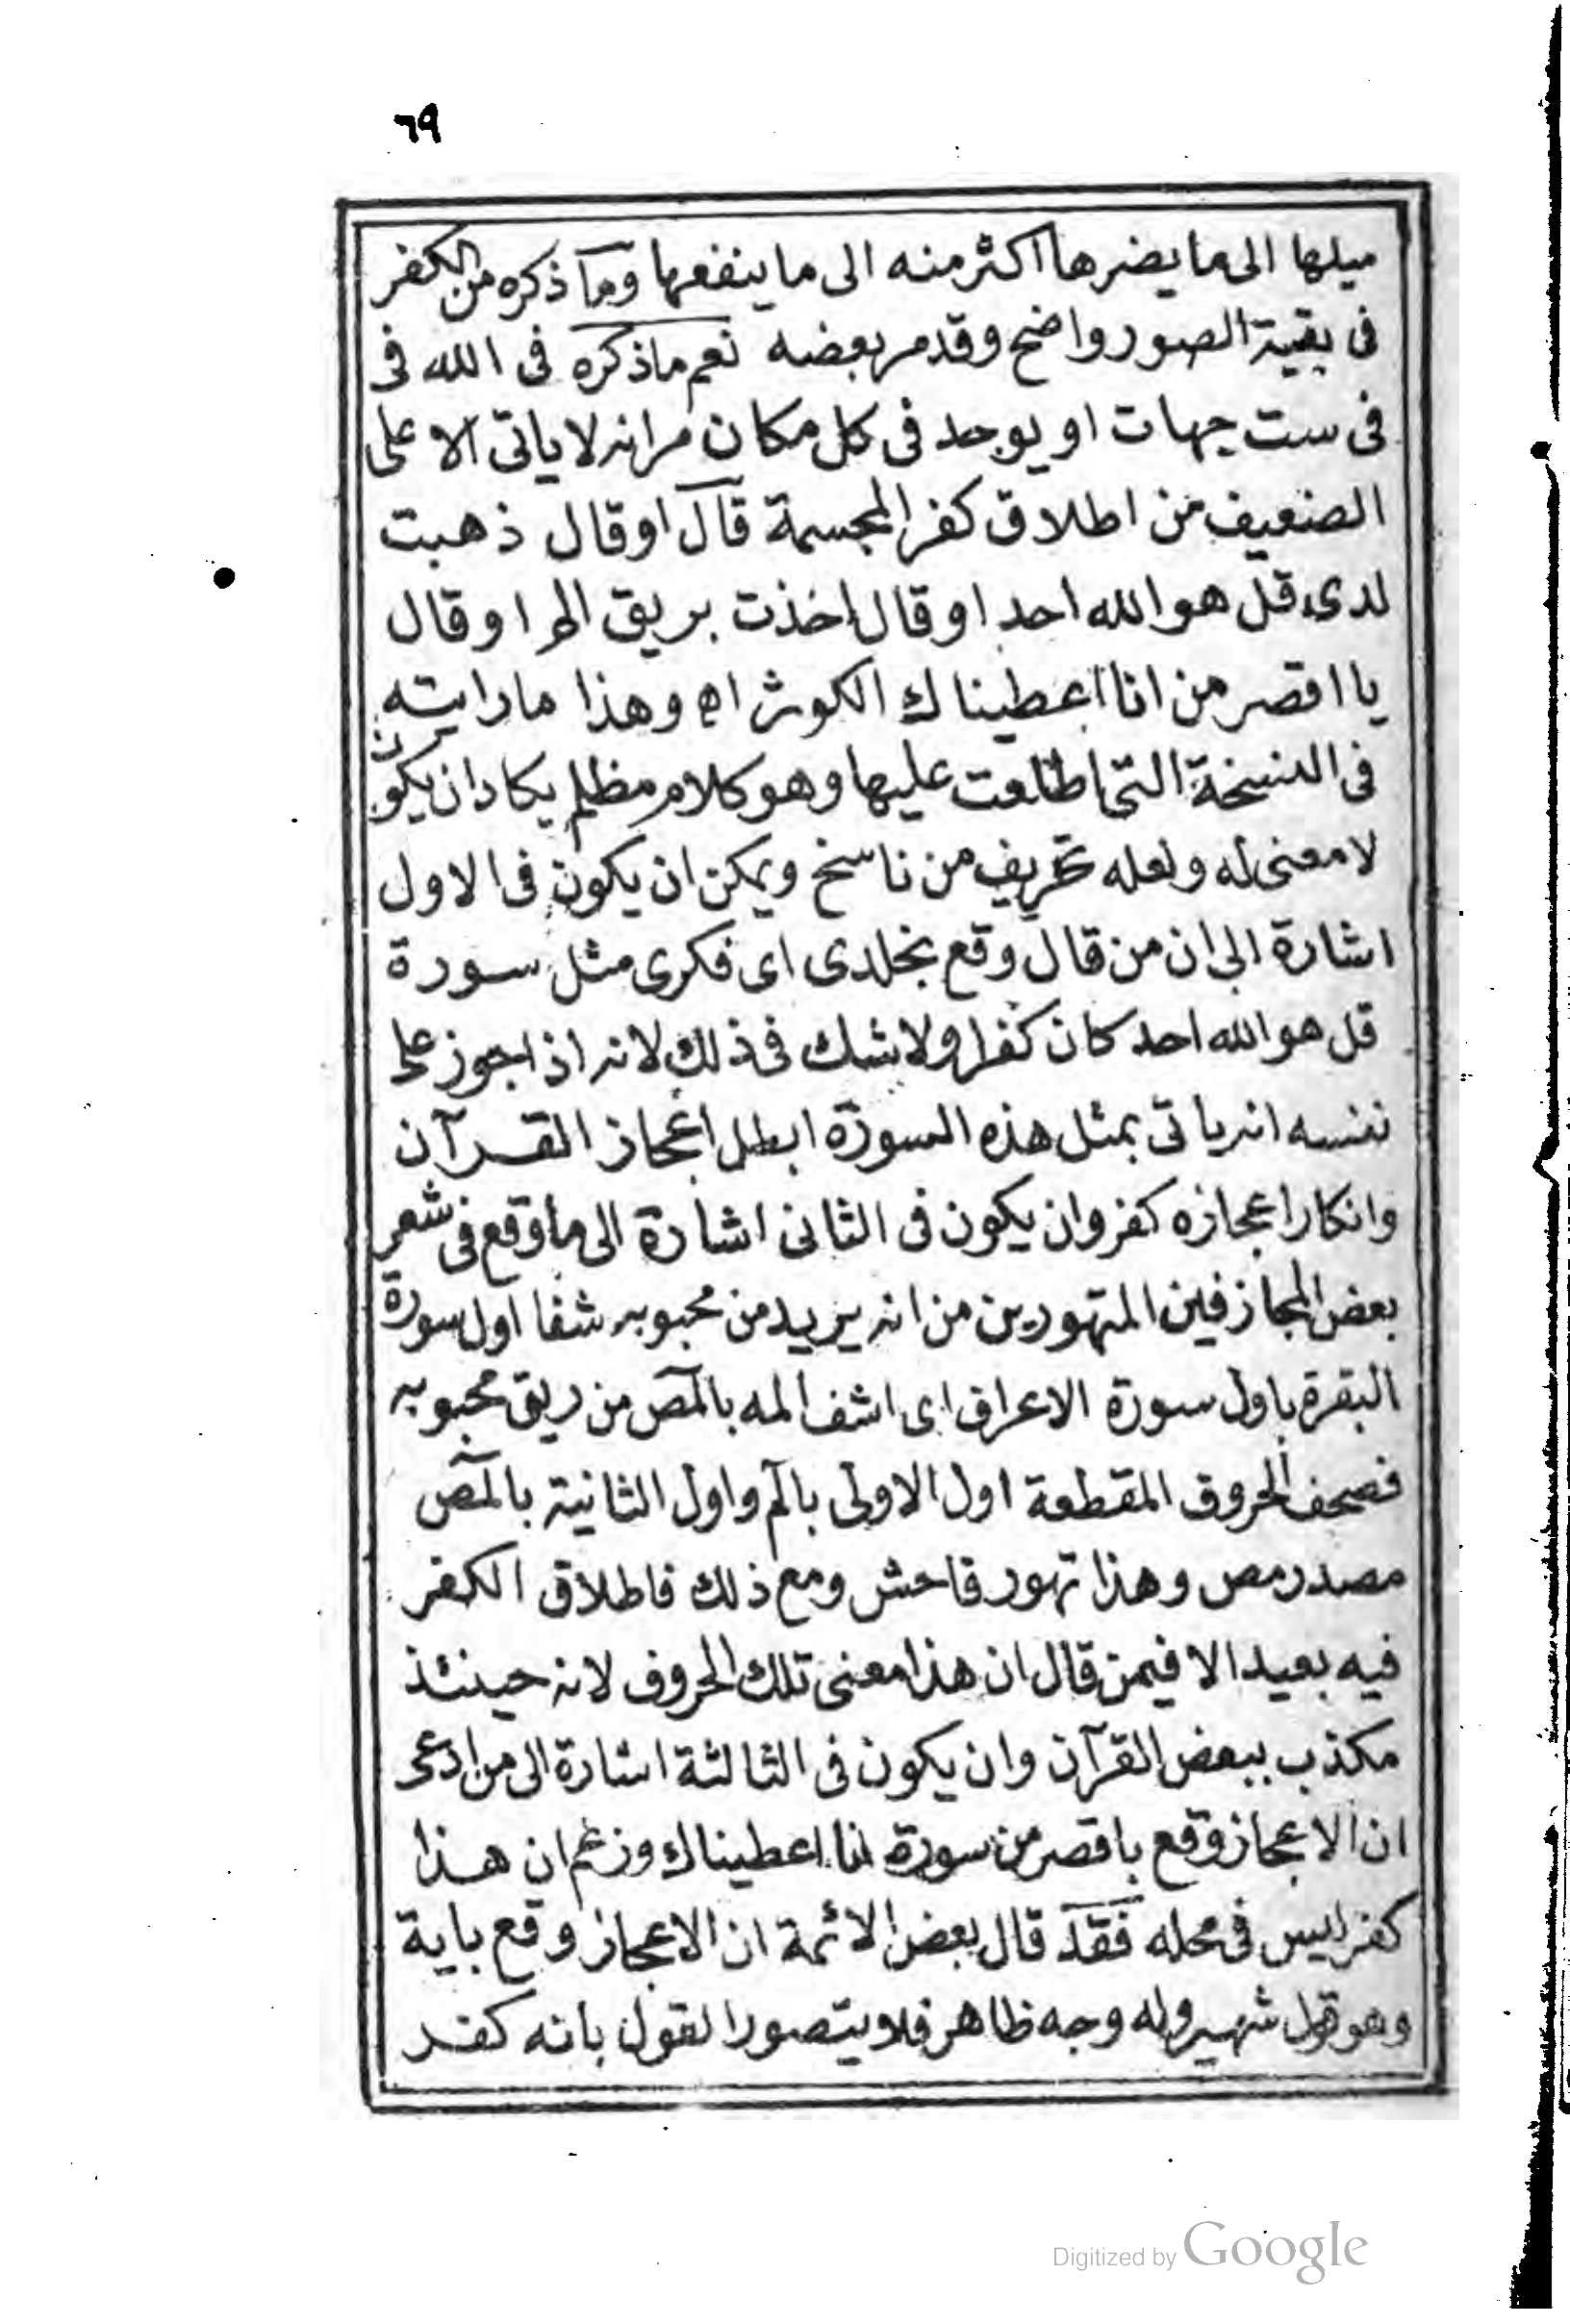 ٦٩
ميلها الى ما يضرها اكثر منه الى ما ينفعها وما ذكره من الكفر
فى بقية الصور واضح وقد مر بعضه نعم ما ذكره فى الله فى
فى ست جهات او يوجد فى كل مكان مر انه لا ياتى الا على
الضعيف من اطلاق كفر المجسمة قال او قال ذهبت
لدى قل هو الله احد او قال اخذت بريق الم او قال
يا اقصر من انا اعطيناك الكوثر اه وهذا ما رايته
فى النسخة التى اطلعت عليها وهو كلام مظلم يكاد ان يكون
لا معنى له ولعله تحريف من ناسخ ويمكن ان يكون فى الاول
اشارة الى ان من قال وقع بخلدى اى فكرى مثل سورة
قل هو الله احد كان كفرا ولا شك فى ذلك لانه اذا جوز على
نفسه انه ياتى بمثل هذه السورة ابطل اعجاز القرآن
وانكار اعجازه كفر وان يكون فى الثانى اشارة الى ما وقع فى شعر
بعض المجازفين المتهورين من انه يريد من محبوبه شفا اول سورة
البقرة باول سورة الاعراف اى اشف المه بالمص من ريق محبوبه
فصحف الحروف المقطعة اول الاولى بالم واول الثانية بالمص
مصدر مص وهذا تهور فاحش ومع ذلك فاطلاق الكفر
فيه بعيد الا فيمن قال ان هذا معنى تلك الحروف لانه حينئذ
مكذب ببعض القرآن وان يكون فى الثالثة اشارة الى من ادعى
ان الاعجاز وقع باقصر من سورة انا اعطيناك وزعم ان هذا
كفر ليس فى محله فقد قال بعض الائمة ان الاعجاز وقع باية
وهو قول شهير وله وجه ظاهر فلا يتصور القول بانه كفر
Digitized by Google